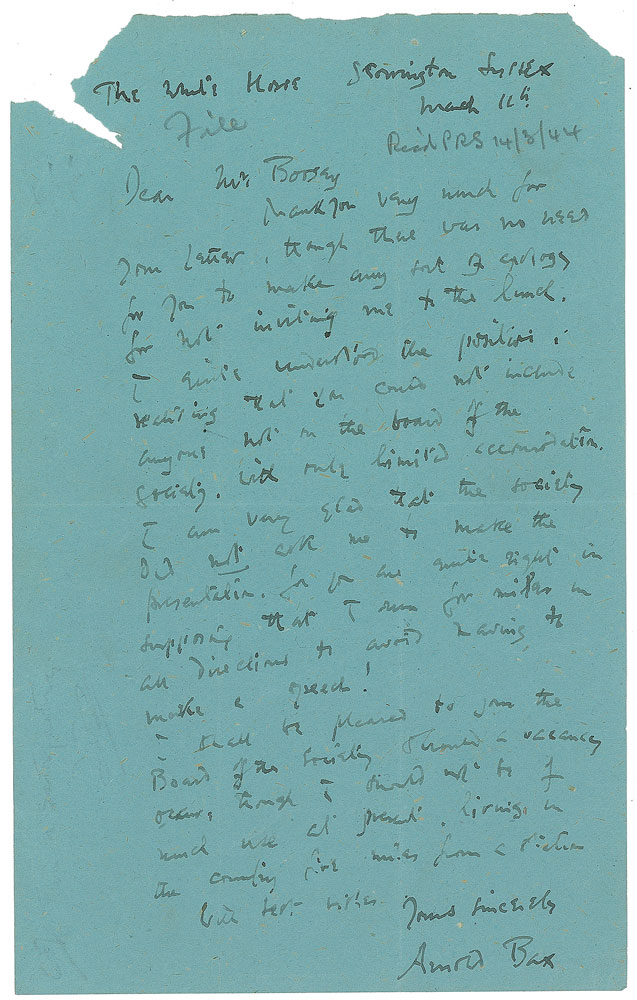 The White Horse Storrington Sussex
March 11th
File
Rec'd PRS 14/3/44
Dear Mr Boosey
Thank you very much for
your letter, though there was no need
for you to make any sort of apology
for not inviting me to the lunch.
I quite understood the position,
realising that you could not include
anyone not on the board of the
Society, with only limited accomodation.
I am very glad that the society
did not ask me to make the
presentation, for you are quite right in
supposing that I run for miles in
all directions to avoid having to
make a speech!
I shall be pleased to join the
Board of the Society should a vacancy
occur, though I should not be of
much use at present, living in
the country five miles from a station
With best wishes
Yours sincerely
Arnold Bax